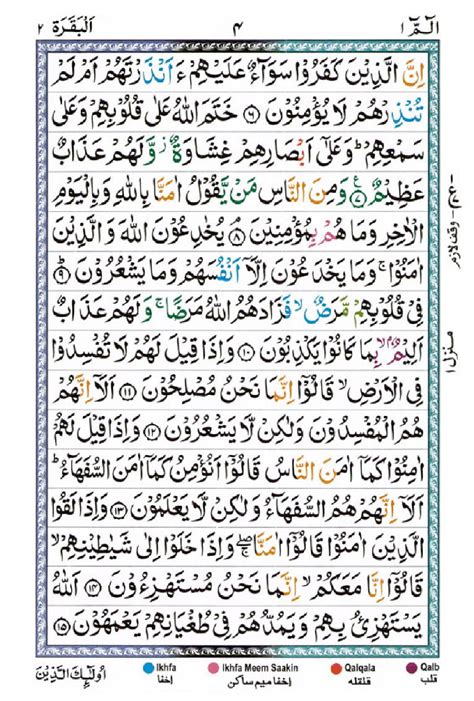 الٓمّٓ ۱ ۴ اَلْبَقَرَة ۲
اِنَّ الَّذِيْنَ كَفَرُوْا سَوَآءٌ عَلَيْهِمْ ءَاَنْذَرْتَهُمْ اَمْ لَمْ
تُنْذِرْهُمْ لَا يُؤْمِنُوْنَ ﴿۶﴾ خَتَمَ اللّٰهُ عَلٰى قُلُوْبِهِمْ وَعَلٰى
سَمْعِهِمْ ؕ وَعَلٰٓى اَبْصَارِهِمْ غِشَاوَةٌ ز وَّلَهُمْ عَذَابٌ
عَظِيْمٌ ﴿۷﴾ وَمِنَ النَّاسِ مَنْ يَّقُوْلُ اٰمَنَّا بِاللّٰهِ وَبِالْيَوْمِ
الْاٰخِرِ وَمَا هُمْ بِمُؤْمِنِيْنَ ﴿۸﴾ يُخٰدِعُوْنَ اللّٰهَ وَالَّذِيْنَ
اٰمَنُوْا ۚ وَمَا يَخْدَعُوْنَ اِلَّآ اَنْفُسَهُمْ وَمَا يَشْعُرُوْنَ ﴿۹﴾
فِيْ قُلُوْبِهِمْ مَّرَضٌ ۙ فَزَادَهُمُ اللّٰهُ مَرَضًا ۚ وَلَهُمْ عَذَابٌ
اَلِيْمٌۢ ۙ بِمَا كَانُوْا يَكْذِبُوْنَ ﴿۱۰﴾ وَاِذَا قِيْلَ لَهُمْ لَا تُفْسِدُوْا
فِي الْاَرْضِ ۙ قَالُوْٓا اِنَّمَا نَحْنُ مُصْلِحُوْنَ ﴿۱۱﴾ اَلَآ اِنَّهُمْ
هُمُ الْمُفْسِدُوْنَ وَلٰكِنْ لَّا يَشْعُرُوْنَ ﴿۱۲﴾ وَاِذَا قِيْلَ لَهُمْ
اٰمِنُوْا كَمَآ اٰمَنَ النَّاسُ قَالُوْٓا اَنُؤْمِنُ كَمَآ اٰمَنَ السُّفَهَآءُ ؕ
اَلَآ اِنَّهُمْ هُمُ السُّفَهَآءُ وَلٰكِنْ لَّا يَعْلَمُوْنَ ﴿۱۳﴾ وَاِذَا لَقُوا
الَّذِيْنَ اٰمَنُوْا قَالُوْٓا اٰمَنَّا ۖۚ وَاِذَا خَلَوْا اِلٰى شَيٰطِيْنِهِمْ ۙ
قَالُوْٓا اِنَّا مَعَكُمْ ۙ اِنَّمَا نَحْنُ مُسْتَهْزِءُوْنَ ﴿۱۴﴾ اَللّٰهُ
يَسْتَهْزِئُ بِهِمْ وَيَمُدُّهُمْ فِيْ طُغْيَانِهِمْ يَعْمَهُوْنَ ﴿۱۵﴾
وقف لازم
منزل ۱
اُولٰٓئِكَ الَّذِيْنَ
Ikhfa Ikhfa Meem Saakin Qalqala Qalb
اِخفا اِخفا میم ساکن قلقله قلب